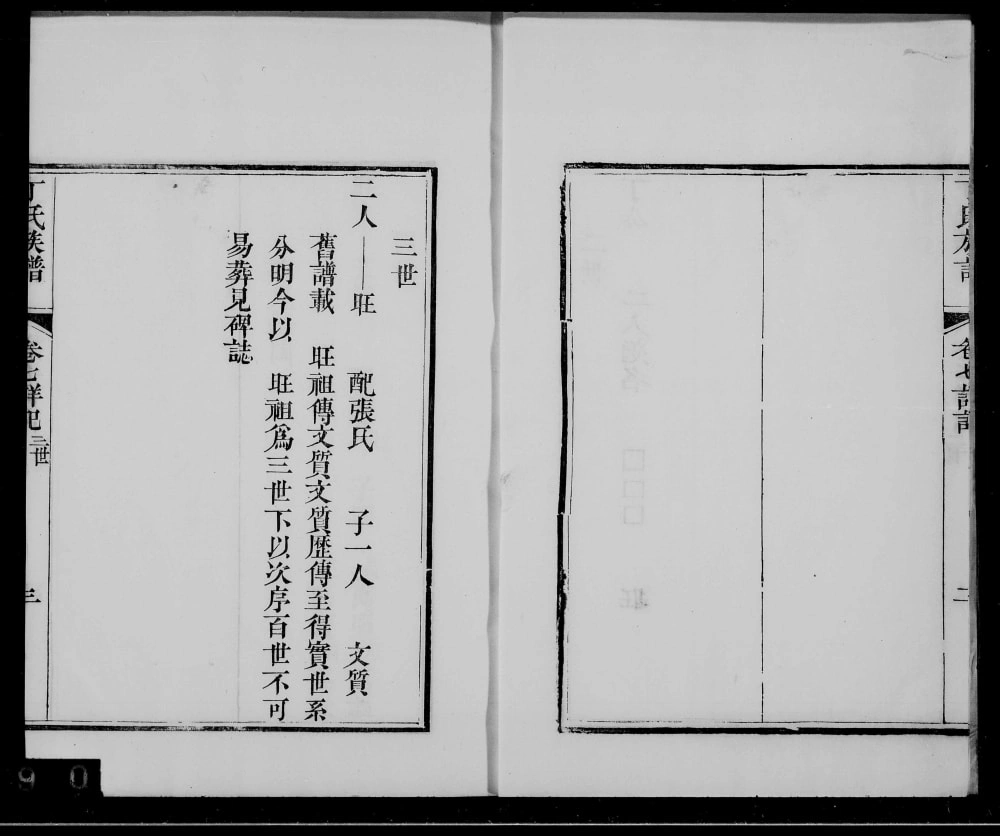 丁氏族譜 卷七詳記 二
三世
二人 旺 配張氏 子一人 文質
舊譜載 旺祖傳文質文質歷傳至得實世系
分明今以 旺祖爲三世下以次序百世不可
易葬見碑誌
丁氏族譜 卷七詳記 三世 三
90